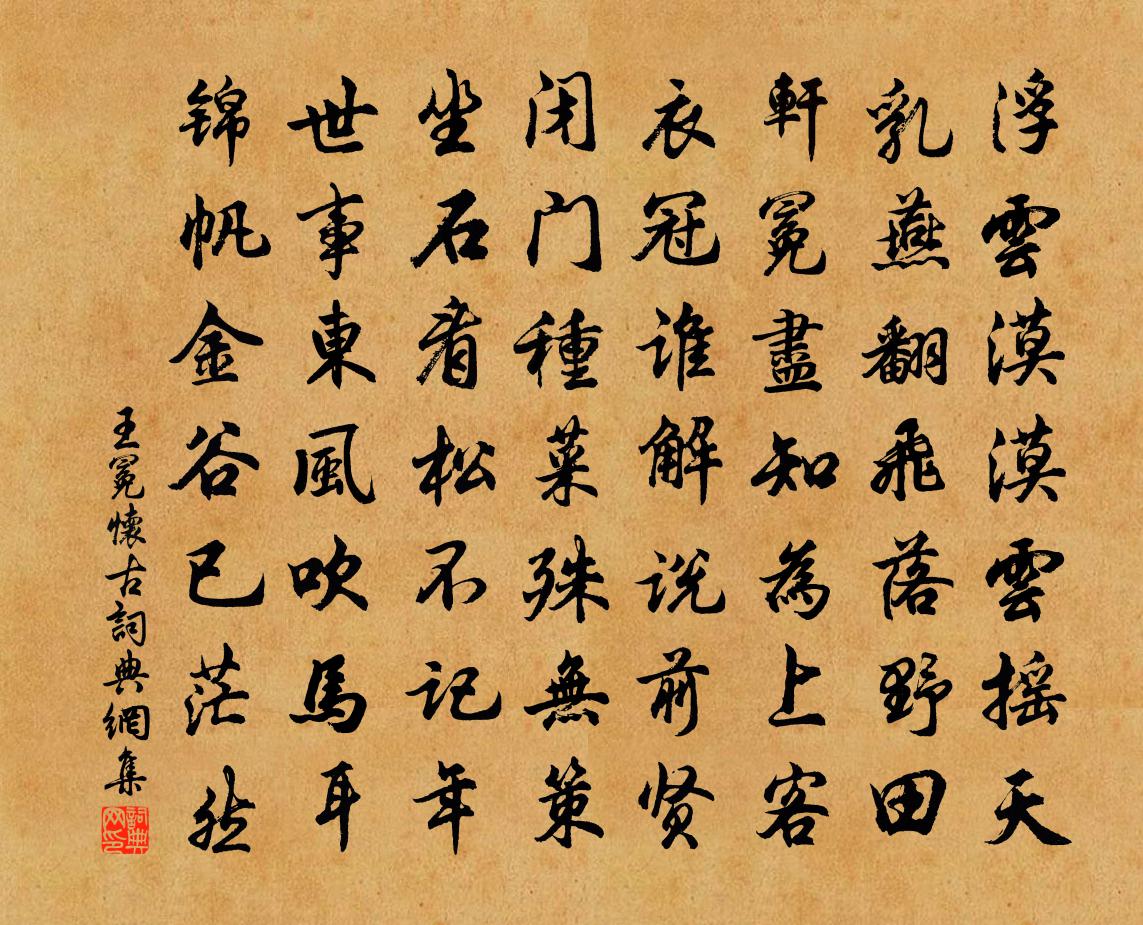 浮雲漠漠雲摇天
乳燕翻飛落野田
軒冕盡知為上客
衣冠谁解说前贤
闭门種菜殊無策
坐石看松不记年
世事東風吹馬耳
锦帆金谷已茫然
王冕懷古詞典網集
詞典网印